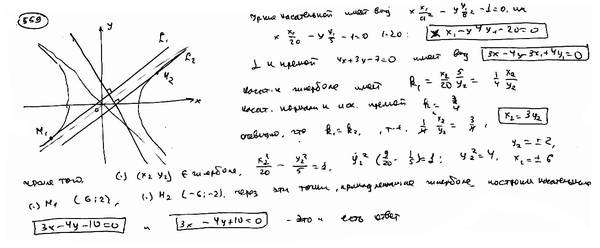 559
y
x
0
L₁
L₂
M₁
M₂
Ур-ие касательной имеет вид x x₁/a² - y y₁/b² - 1 = 0, или
x x₁/20 - y y₁/5 - 1 = 0 |·20: x x₁ - y 4 y₁ - 20 = 0
⊥ к прямой 4x + 3y - 7 = 0 имеет вид 3x - 4y - 3x₁ + 4y₁ = 0
касат. к гиперболе имеет k₁ = x₂/20 · 5/y₂ = 1/4 x₂/y₂
касат. нормали к исх. прямой k = 3/4
очевидно, что k₁ = k₂, т.е. 1/4 x₂/y₂ = 3/4, x₂ = 3y₂
кроме того, (·) (x₂ y₂) ∈ гиперболе, x₂²/20 - y₂²/5 = 1, y₂² (9/20 - 1/5) = 1; y₂² = 4, y₂ = ±2, x₂ = ±6
(·) M₁ (6; 2), (·) M₂ (-6; -2), через эти точки, принадлежащие гиперболе, построим касательные
3x - 4y - 10 = 0 и 3x - 4y + 10 = 0 - это и есть ответ